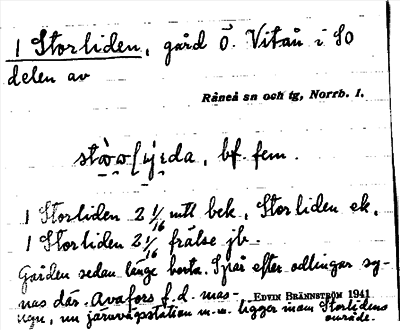 1 Storliden, gård Ö. Vitån i SO
delen av
Råneå sn och tg, Norrb. l.
bf. fem.
1 Storliden 2 1/16 mtl bek. Storliden ek.
1 Storliden 2 1/16 frälse jb.
Gården sedan länge borta. Spår efter odlingar sy-
nas där. Avafors f.d. mas-
EDVIN BRÄNNSTRÖM 1941
ugn, nu järnvägsstation m.m. ligger inom Storlidens
område.